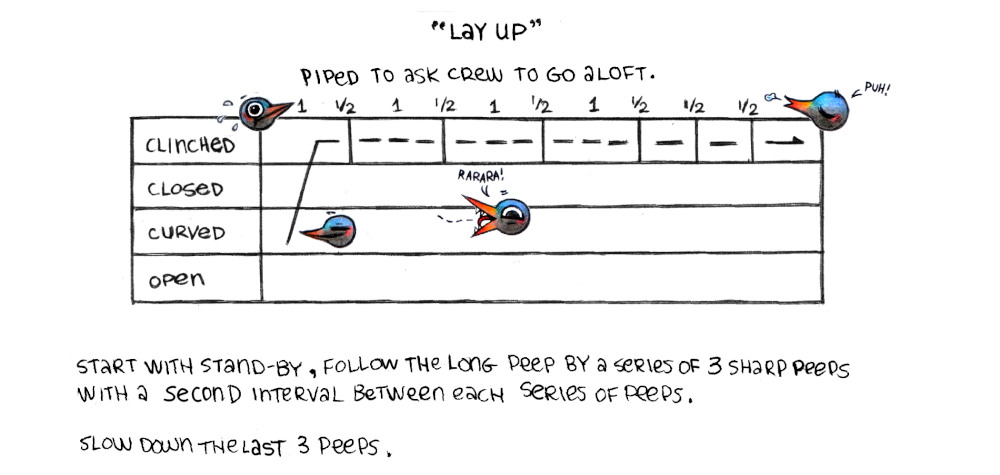 "LAY UP"
PIPED TO ASK CREW TO GO ALOFT.
1 1/2 1 1/2 1 1/2 1 1/2 1/2 1/2
PUH!
CLINCHED
CLOSED
RARARA!
CURVED
OPEN
START WITH STAND-BY, FOLLOW THE LONG PEEP BY A SERIES OF 3 SHARP PEEPS
WITH A SECOND INTERVAL BETWEEN EACH SERIES OF PEEPS.
SLOW DOWN THE LAST 3 PEEPS.